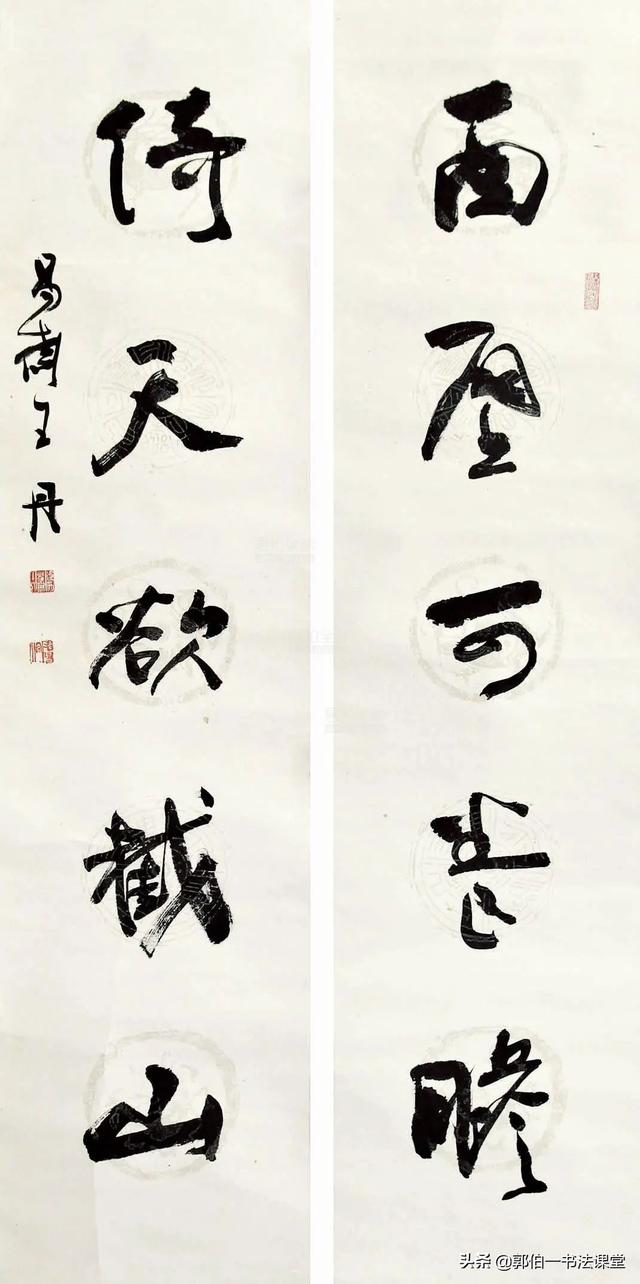 面壁可嘗膽
倚天欲截山
王丹
头条 @郭伯一书法课堂